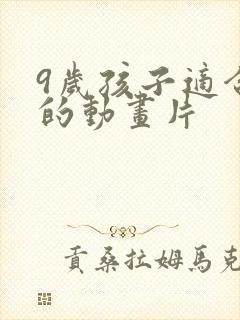 9歲孩子適合
的動畫片
貢桑拉姆馬克